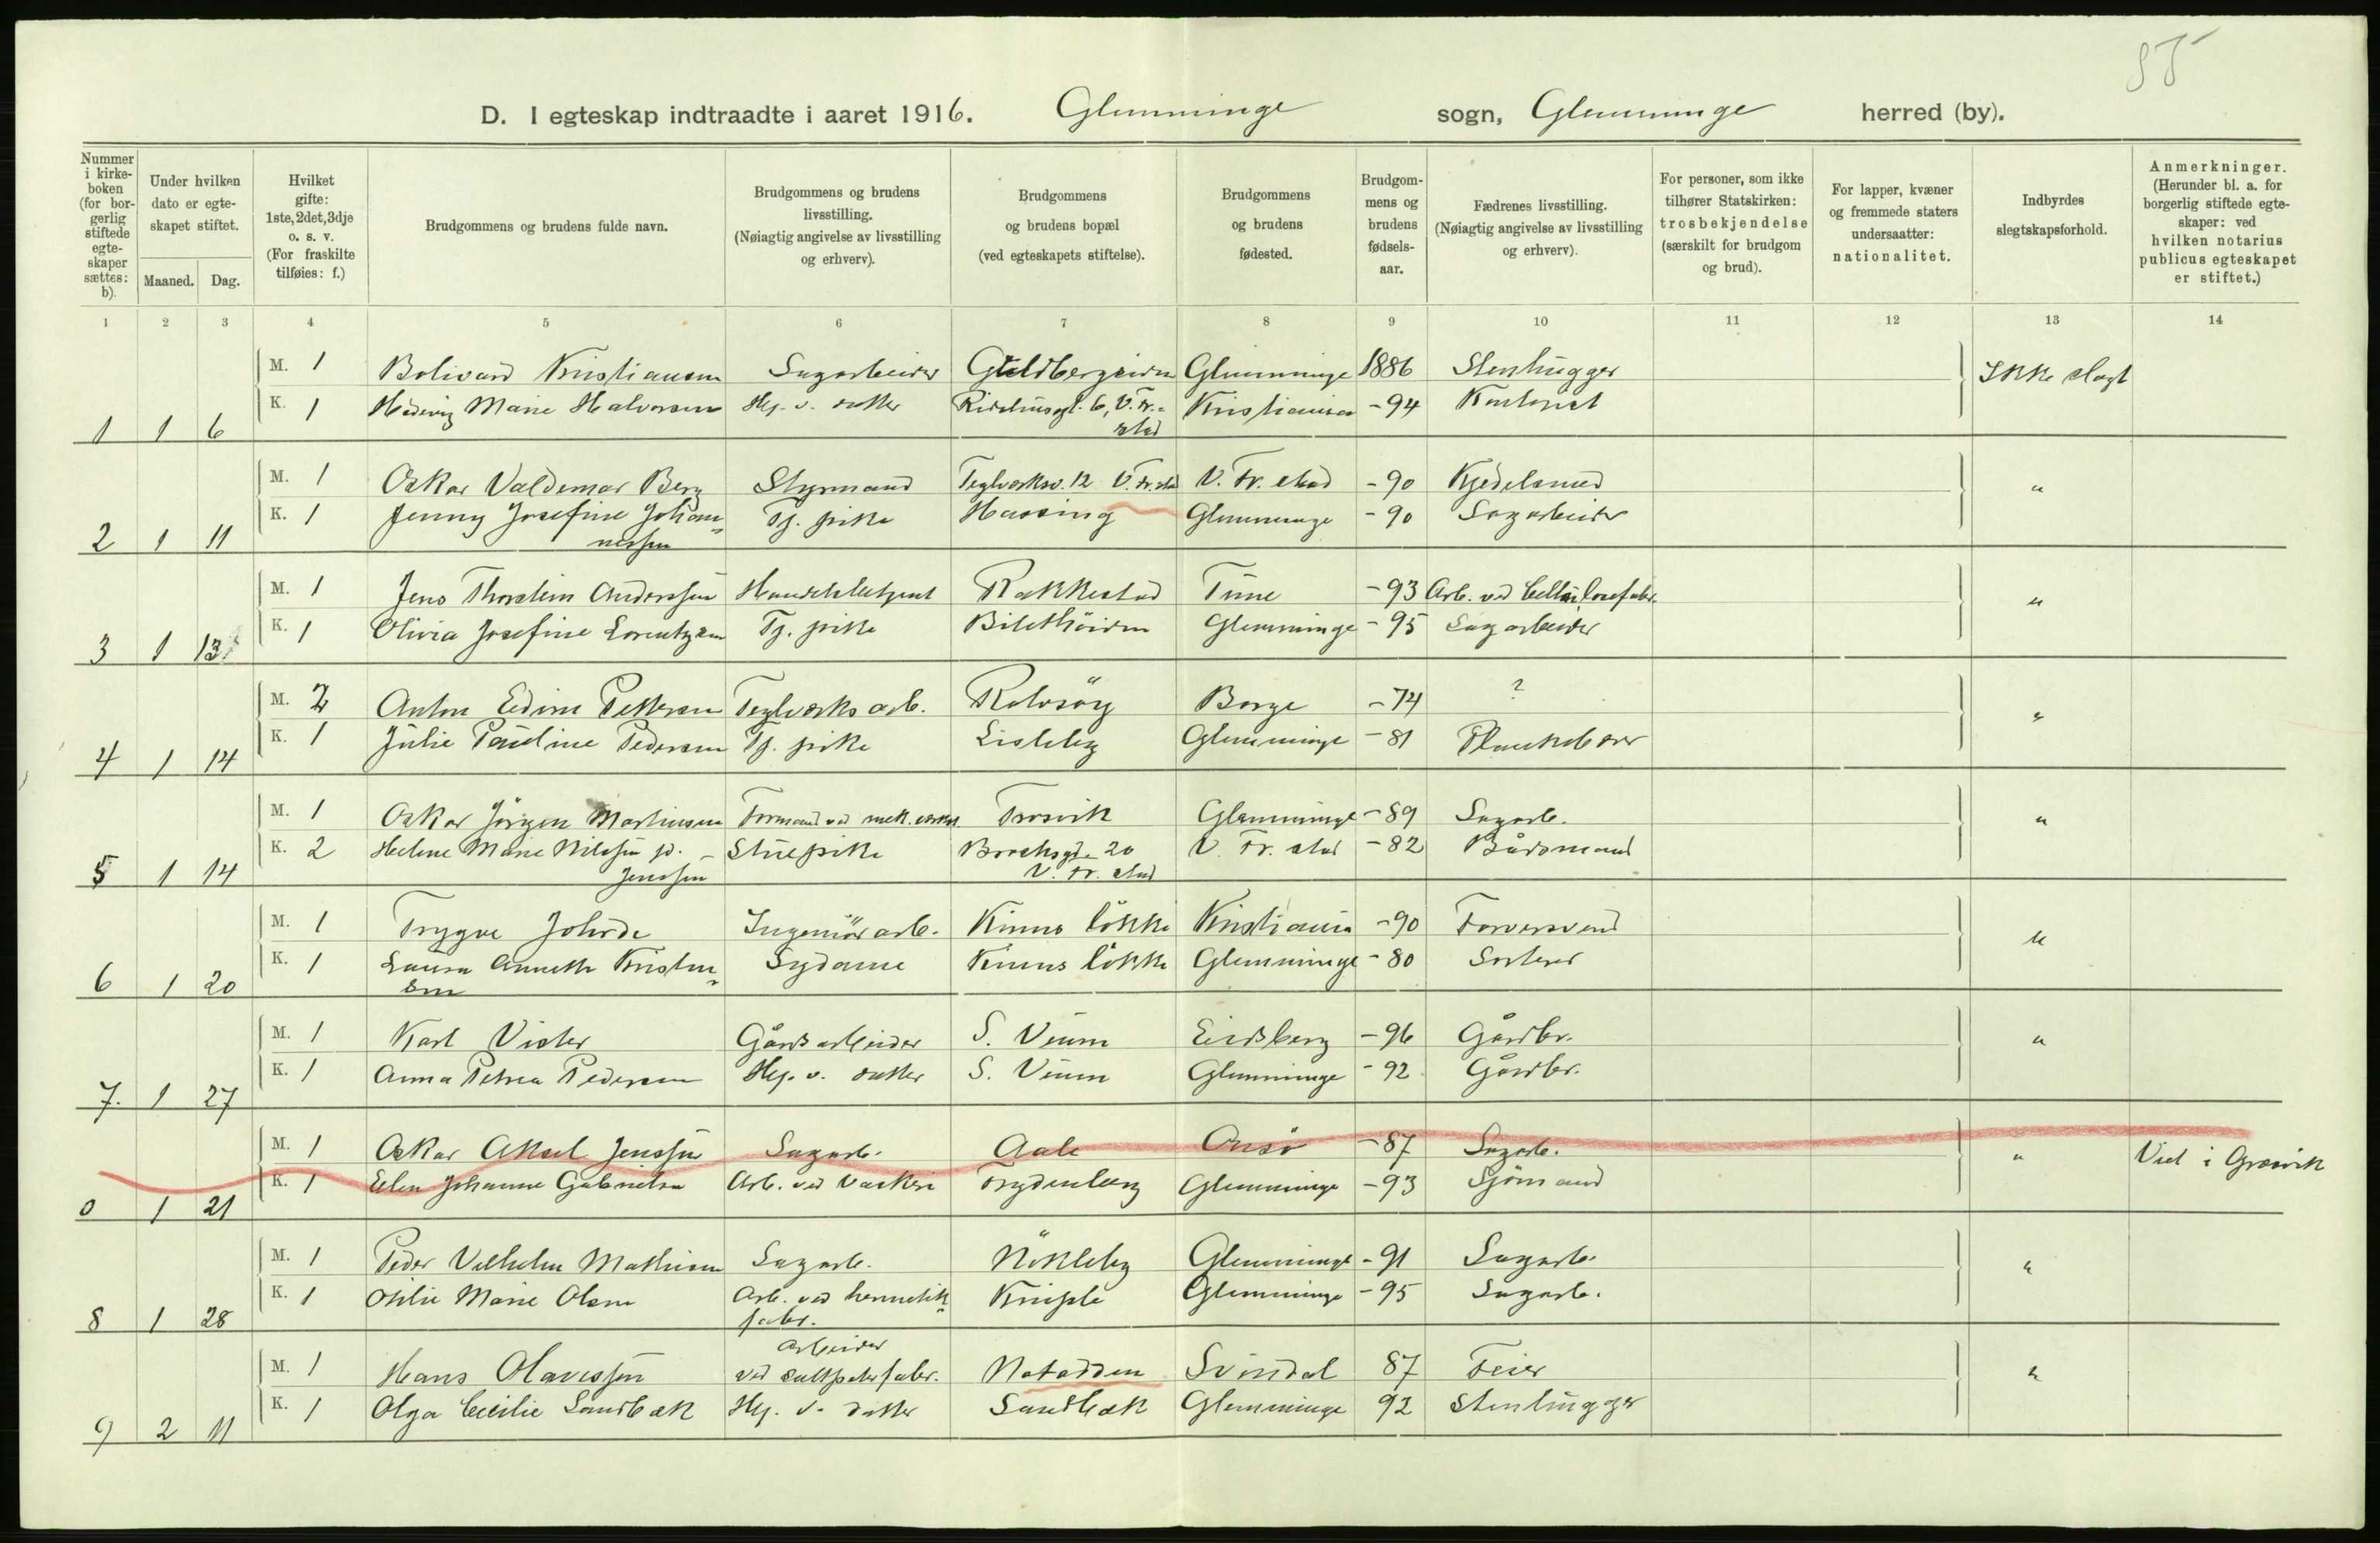 85
D. I egteskap indtraadte i aaret 1916. Glemminge sogn, Glemminge herred (by).
Nummer i kirkeboken (for borgerlig stiftede egteskaper sættes: b).
Under hvilken dato er egteskapet stiftet.
Maaned. Dag.
Hvilket gifte: 1ste, 2det, 3dje o. s. v. (For fraskilte tilføies: f.)
Brudgommens og brudens fulde navn.
Brudgommens og brudens livsstilling. (Nøiagtig angivelse av livsstilling og erhverv).
Brudgommens og brudens bopæl (ved egteskapets stiftelse).
Brudgommens og brudens fødested.
Brudgommens og brudens fødselsaar.
Fædrenes livsstilling. (Nøiagtig angivelse av livsstilling og erhverv).
For personer, som ikke tilhører Statskirken: trosbekjendelse (særskilt for brudgom og brud).
For lapper, kvæner og fremmede staters undersaatter: nationalitet.
Indbyrdes slegtskapsforhold.
Anmerkninger. (Herunder bl. a. for borgerlig stiftede egteskaper: ved hvilken notarius publicus egteskapet er stiftet.)
1 2 3 4 5 6 7 8 9 10 11 12 13 14
M. 1 Bolivard Kristiansen Sagarbeider Glemminge 1886 Stenhugger Ikke slegt
K. 1 Hedevig Marie Halvorsen Hj. v. datter Ridehusgt. 6, V. Fr.- Kristiania -94 Kontorist
1 1 6 stad
M. 1 Oskar Valdemar Berg Styrmand Teglverksv. 12 V. Fr. stad V. Fr. stad -90 Kjedelsmed "
K. 1 Jenny Josefine Johan- Tj. pike Hassing Glemminge -90 Sagarbeider
2 1 11 nessen
M. 1 Jens Thorstein Anderssen Handelsbetjent Rakkestad Tune -93 Arb. ved Cellulosefabr. "
K. 1 Olivia Josefine Lorentzen Tj. pike Glemminge -95 Sagarbeider
3 1 13
M. 2 Anton Edvin Pettersen Teglverksarb. Rolvsöy Borge -74 ? "
K. 1 Julie Pauline Pedersen Tj. pike Lisleby Glemminge -81 Plankebærer
4 1 14
M. 1 Oskar Jörgen Martinsen Formand ved mek. verksted Trosvik Glemminge -89 Sagarb. "
K. 2 Helene Marie Nilssen fd. - Stuepike 20 V. Fr. stad -82 Baadsmand
5 1 14 Jenssen V. Fr. stad
M. 1 Trygve Ingeniörarb. Kinns lökke Kristiania -90 Farversvend "
K. 1 Laura Annette Kristen- Sydame Kinns lökke Glemminge -80 Sorterer
6 1 20 sen
M. 1 Karl Vister Gårdsarbeider S. Veum Eidsberg -96 Gårdbr. "
K. 1 Anna Petrea Pedersen Hj. v. datter S. Veum Glemminge -92 Gårdbr.
7. 1 27
M. 1 Oskar Aksel Jenssen Sagarb. Aale Onsö -87 Sagarb. " Viet i Gressvik
K. 1 Elen Johanne Gabrielsen Arb. ved vaskeri Trydenborg Glemminge -93 Sjömand
0 1 21
M. 1 Peder Vilhelm Mathisen Sagarb. Nökleby Glemminge -91 Sagarb. "
K. 1 Otilie Marie Olsen Arb. ved hermetik- Kniple Glemminge -95 Sagarb.
8 1 28 fabr.
Arbeider
M. 1 Hans Olavessen ved saltpeterfabr. Notodden Svindal 87 Feier "
K. 1 Olga Cecilie Sandbæk Hj. v. datter Sandbæk Glemminge 92 Stenhugger
9 2 11